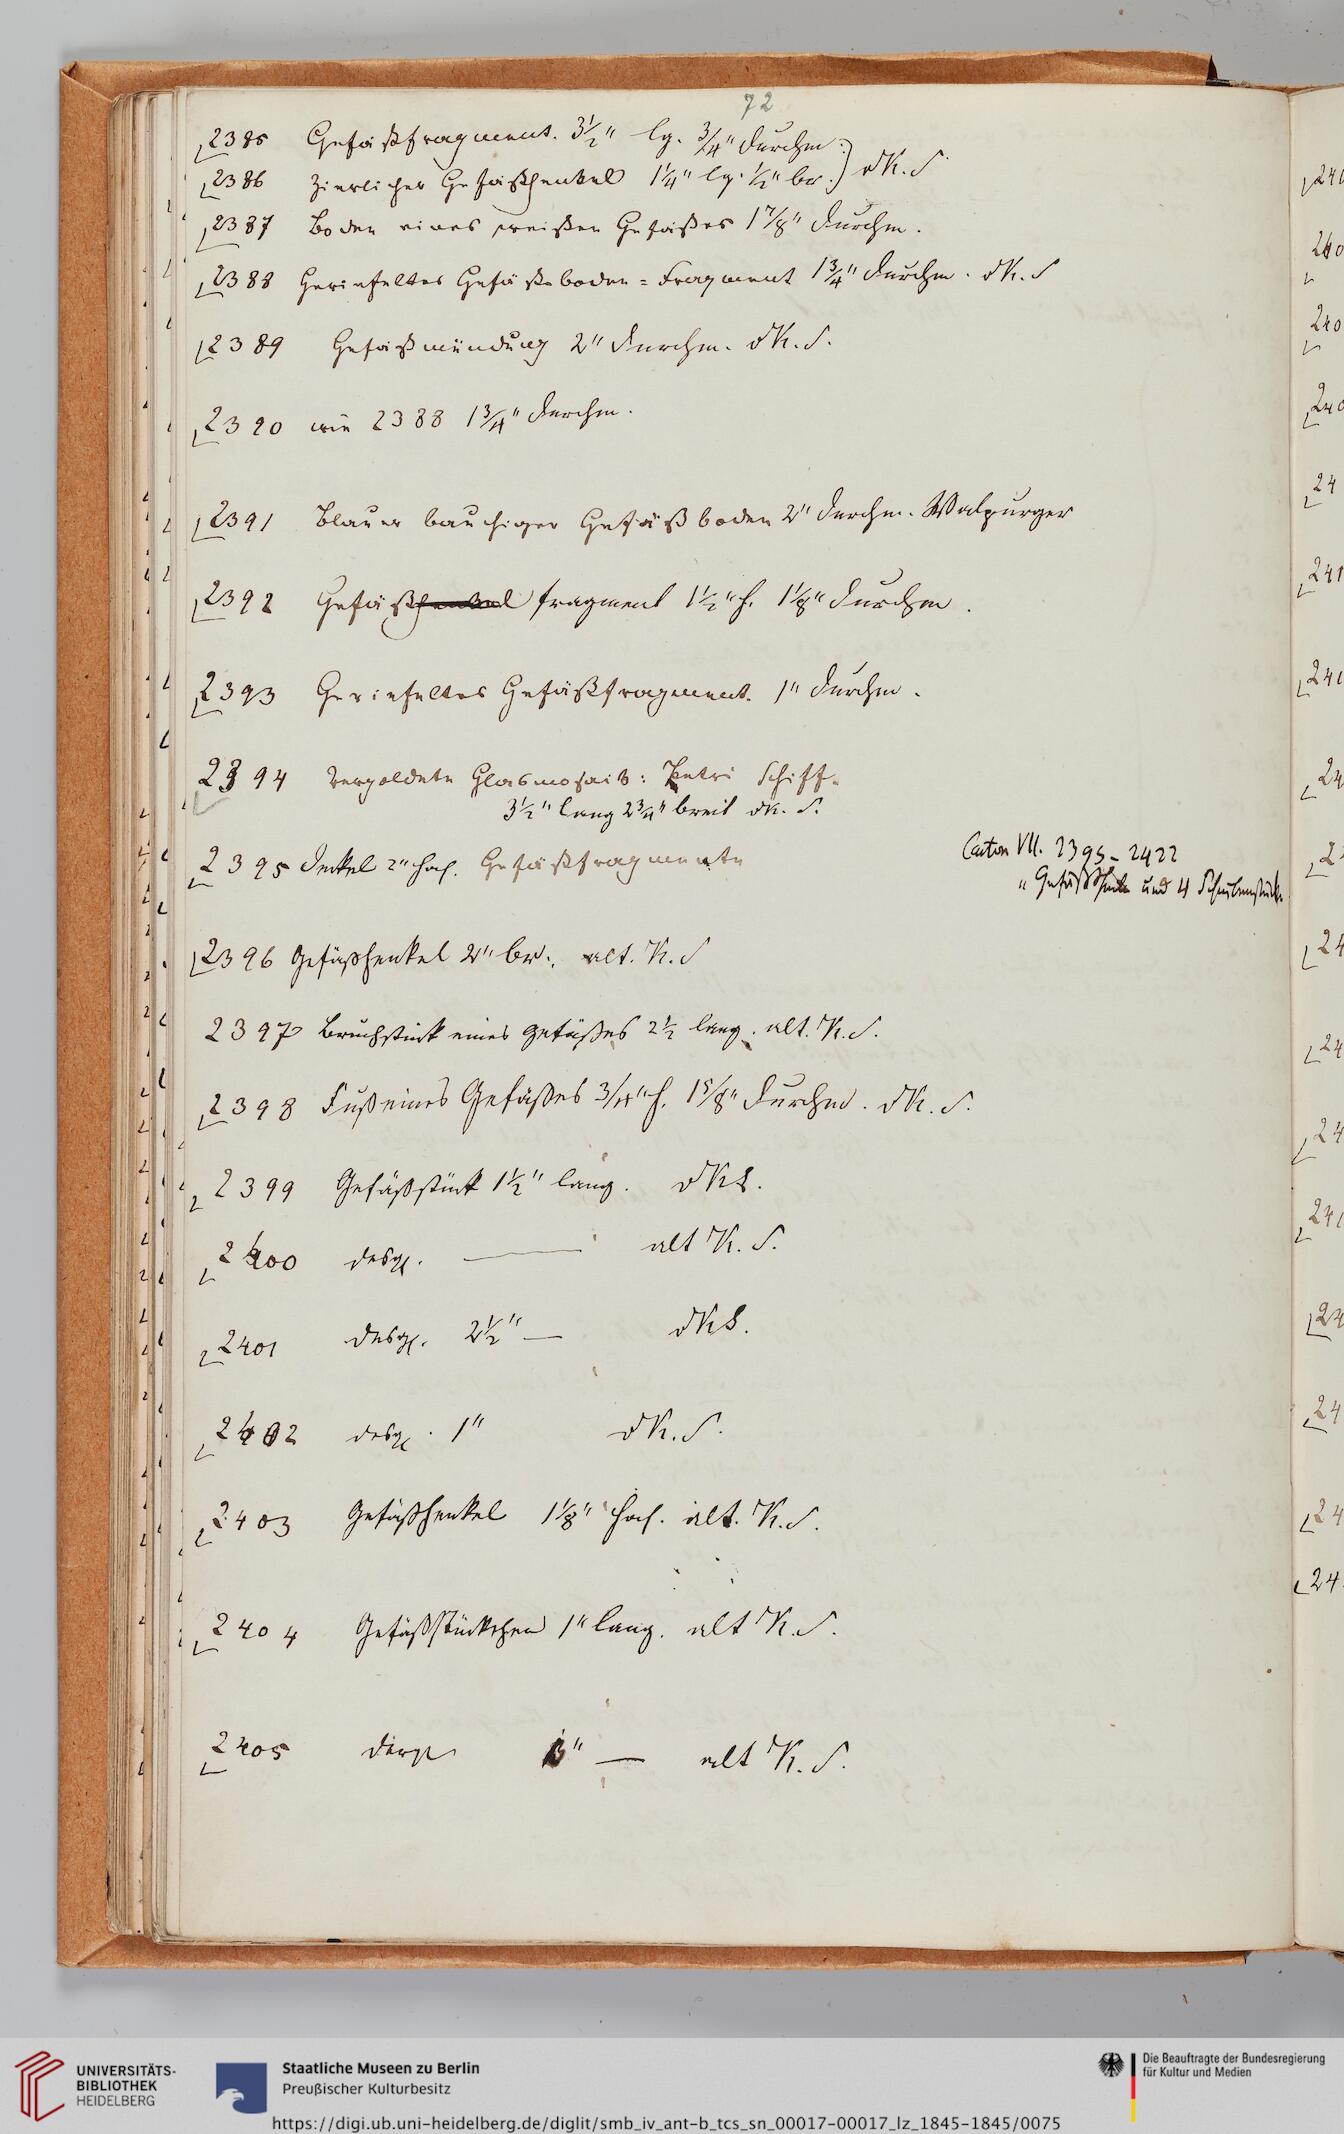 72
2385 Gefäßfragment. 3½" lg. ¾" Durchm.
2386 Zierlicher Gefäßhenkel 1¼" lg. ½" br.) dK.S
2387 Boden eines weißen Gefäßes 1⅞" Durchm.
2388 Geriefeltes Gefäßboden=Fragment 1¾" Durchm. dK.S
2389 Gefäßmündung 2" Durchm. dK.S.
2390 wie 2388 1¾" Durchm.
2391 Blauer bauchiger Gefäßboden 2" Durchm. Walpurger
2392 Gefäßhenkel fragment 1½" h. 1⅛" Durchm.
2393 Geriefeltes Gefäßfragment. 1" Durchm.
2394 Vergoldete Glasmosaik: Petri Schiff.
3½" lang 2¾" breit dK.S.
2395 Deckel 2" hoch. Gefäßfragmente
Carton VII. 2395-2422
" Gefäßtheile und 4 Scheibenstücke
2396 Gefäßhenkel 2" br. alt. K.S
2397 Bruchstück eines Gefäßes 2½ lang. alt. K.S.
2398 Fuß eines Gefäßes ¾" h. 1⅝" Durchm. dK.S.
2399 Gefäßstück 1½" lang. dKS.
2400 desgl. — alt K.S.
2401 desgl. 2½" — dKS.
2402 desgl. 1" dK.S.
2403 Gefäßhenkel 1⅛" hoch. alt. K.S.
2404 Gefäßstückchen 1" lang. alt K.S.
2405 dergl — alt K.S.
240
240
240
240
24
241
241
24
2
24
24
24
241
24
24
24
24
UNIVERSITÄTS-
BIBLIOTHEK
HEIDELBERG
Staatliche Museen zu Berlin
Preußischer Kulturbesitz
Die Beauftragte der Bundesregierung
für Kultur und Medien
https://digi.ub.uni-heidelberg.de/diglit/smb_iv_ant-b_tcs_sn_00017-00017_lz_1845-1845/0075